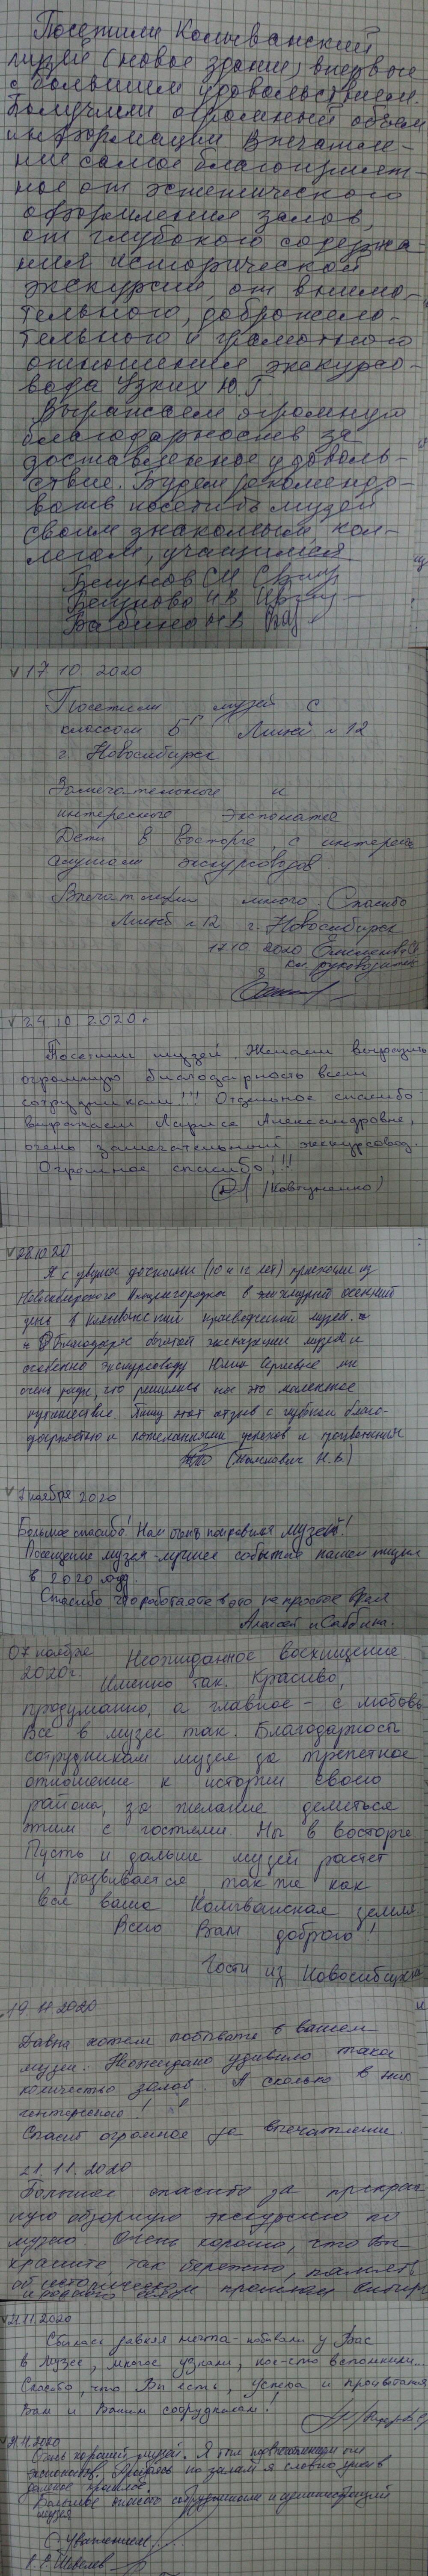 Посетили Колыванский
музей (новое здание) впервые
с большим удовольствием.
Получили огромный объем
информации. Впечатле-
ние самое благоприят-
ное от эстетического
оформления залов,
от глубокого содержа-
ния исторической
экскурсии, от внима-
тельного, доброжела-
тельного и грамотного
отношения экскурсо-
вода Узких Ю.Г.
Выражаем огромную
благодарность за
доставленное удоволь-
ствие. Будем рекомендо-
вать посетить музей
своим знакомым, кол-
легам, учащимся
Бегунов СН
Бегунова НВ
Бабина НВ
17.10.2020
Посетили музей с
классом 5 Лицей №12
г. Новосибирск
Замечательные и
интересные экспонаты
Дети в восторге, с интересом
слушали экскурсоводов
Впечатлений много. Спасибо
Лицей №12 г. Новосибирск
17.10 2020
кл. руководитель
24 10 2020 г
Посетили музей. Желаем выразить
огромную благодарность всем
сотрудникам!!! Отдельное спасибо
выражаем Ларисе Александровне,
очень замечательный экскурсовод.
Огромное спасибо!!!
(Ковтуненко)
28.10.20
Я с двумя дочками (10 и 12 лет) приехали из
Новосибирского Академгородка в осенний
день в Колыванский краеведческий музей
Благодаря богатой экспозиции музея и
особенно экскурсоводу Юлии Сергеевне мы
очень рады, что решились на это маленькое
путешествие. Пишу этот отзыв с глубокой благо-
дарностью и пожеланиями успехов и процветания
7 ноября 2020
Большое спасибо! Нам очень понравился музей!
Посещение музея - лучшее событие нашей жизни
в 2020 году.
Спасибо что работаете в это не простое время
Алексей и Сабина.
07 ноября
2020г. Неожиданное восхищение
Именно так. Красиво,
продуманно, а главное - с любовью
Все в музее так. Благодарность
сотрудникам музея за трепетное
отношение к истории своего
района, за желание делиться
этим с гостями. Мы в восторге
Пусть и дальше музей растет
и развивается, так же как
вся ваша Колыванская земля
Всего Вам доброго!
Гости из Новосибирска
19 11 2020
Давна хотели побывать в вашем
музеи. Неожидано удивило такое
количество залов. А сколько в них
Спасиб огромное за впечатления.
21.11.2020
Большое спасибо за прекрас-
ную обзорную экскурсию по
музею. Очень хорошо, что Вы
храните так бережно, память
об историческом прошлом Сибири
и родного села
21.11.2020
Сбылась давняя мечта - побывали у Вас
в музее, многое узнали, кое-что вспомнили...
Спасибо, что Вы есть, успеха и процветания
Вам и Вашим сотрудникам!
21.11.2020
Очень хороший музей. Я был под впечатлением от
экспонатов. Пройдясь по залам я словно улетел
в далекое прошлое.
Большое спасибо сотрудникам и администрации
музея
С уважением,
Шевелев